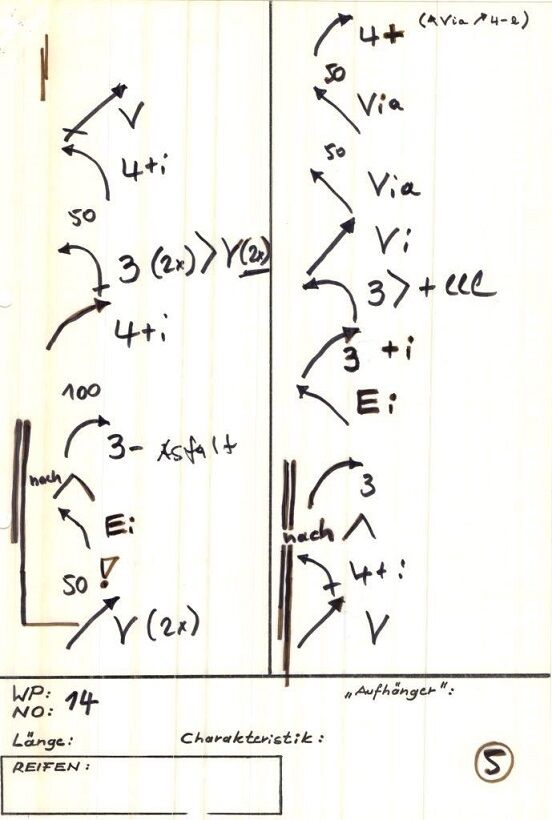 V
4+i
50
3 (2x) > V (2x)
4+i
100
3- Asfalt
nach
Ei
50 !
V (2x)
4+ (↖ Via ↗ 4-e)
50
Via
50
Via
Vi
3 > + eee
3 +i
Ei
3
nach
4+i
V
WP: 14
NO:
Länge: Charakteristik:
REIFEN:
„Aufhänger":
5